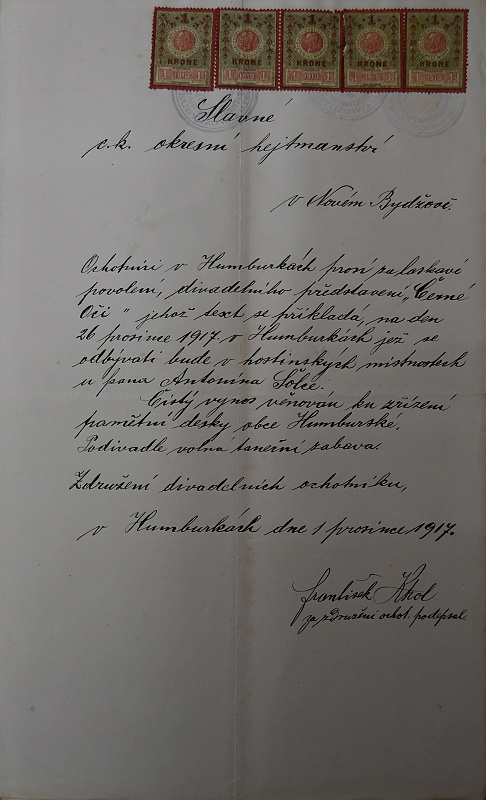 1 1 1 1 1
KRONE KRONE KRONE KRONE KRONE
1 1910 1 1 1910 1 1 1910 1 1 1910 1 1 1910 1
Slavné
c.k. okresní hejtmanství
v Novém Bydžově.
Ochotníci v Humburkách prosí za laskavé
povolení, divadelního představení, „Černé
Oči“ jehož text se přikládá, na den
26 prosince 1917. v Humburkách jež se
odbývati bude v hostinských místnostech
u pana Antonína Šolce.
Čistý výnos věnován ku zřízení
pamětní desky obce Humburské,
Podivadle volná taneční zabava.
Združení divadelních ochotníku,
v Humburkách dne 1 prosince 1917.
František Khol
za združení ochot. podepsal.